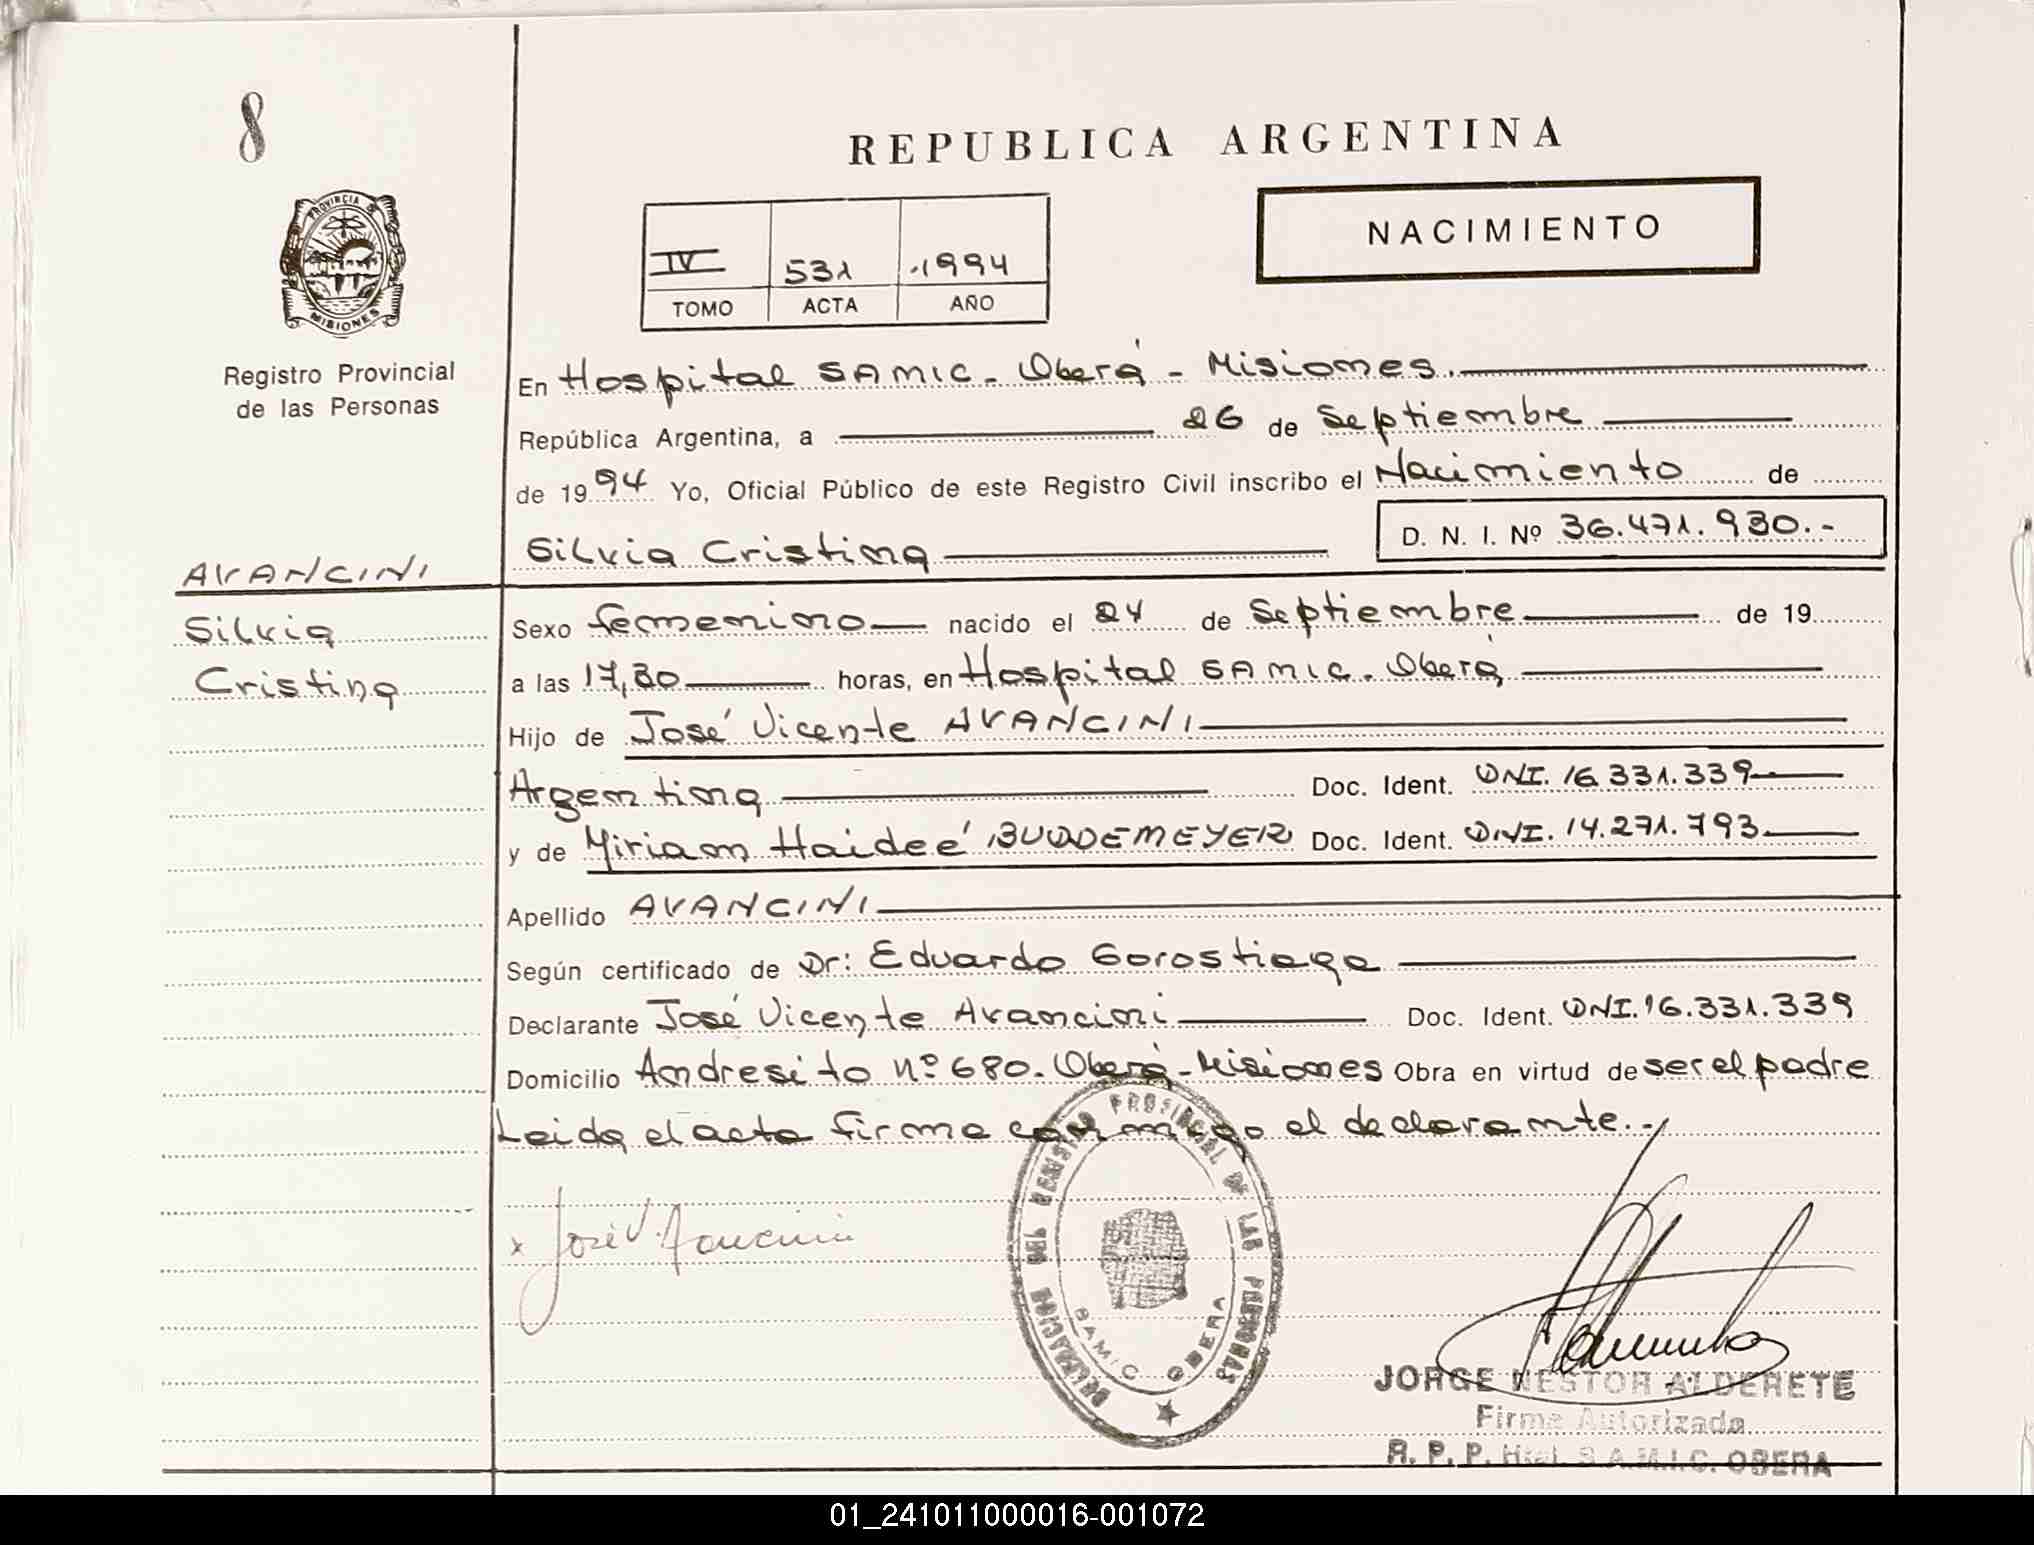 8
REPUBLICA ARGENTINA
NACIMIENTO
IV 531 1994
TOMO ACTA AÑO
PROVINCIA DE MISIONES
Registro Provincial
de las Personas
En Hospital SAMIC - Oberá - Misiones.
República Argentina, a 26 de Septiembre
de 1994 Yo, Oficial Público de este Registro Civil inscribo el Nacimiento de
Silvia Cristina D. N. I. Nº 36.471.930.-
AVANCINI
Silvia
Cristina
Sexo femenino nacido el 24 de Septiembre de 19
a las 17,30 horas, en Hospital SAMIC. Oberá
Hijo de José Vicente AVANCINI
Argentina Doc. Ident. DNI. 16.331.339
y de Miriam Haideé BUDDEMEYER Doc. Ident. DNI. 14.271.793
Apellido AVANCINI
Según certificado de Dr: Eduardo Gorostiaga
Declarante José Vicente Avancini Doc. Ident. DNI. 16.331.339
Domicilio Andresito Nº 680. Oberá - Misiones Obra en virtud de ser el padre
Leida el acta firma conmigo el declarante.-
x José V. Avancini
DELEGACION DEL REGISTRO PROVINCIAL DE LAS PERSONAS
SAMIC OBERA
JORGE NESTOR ALDERETE
Firma Autorizada
R. P. P. Htal. S.A.M.I.C. OBERA
01_241011000016-001072